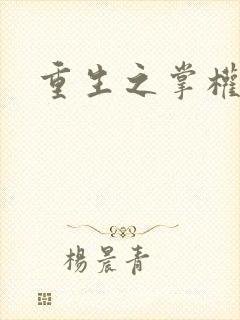 重生之掌權
楊晨青